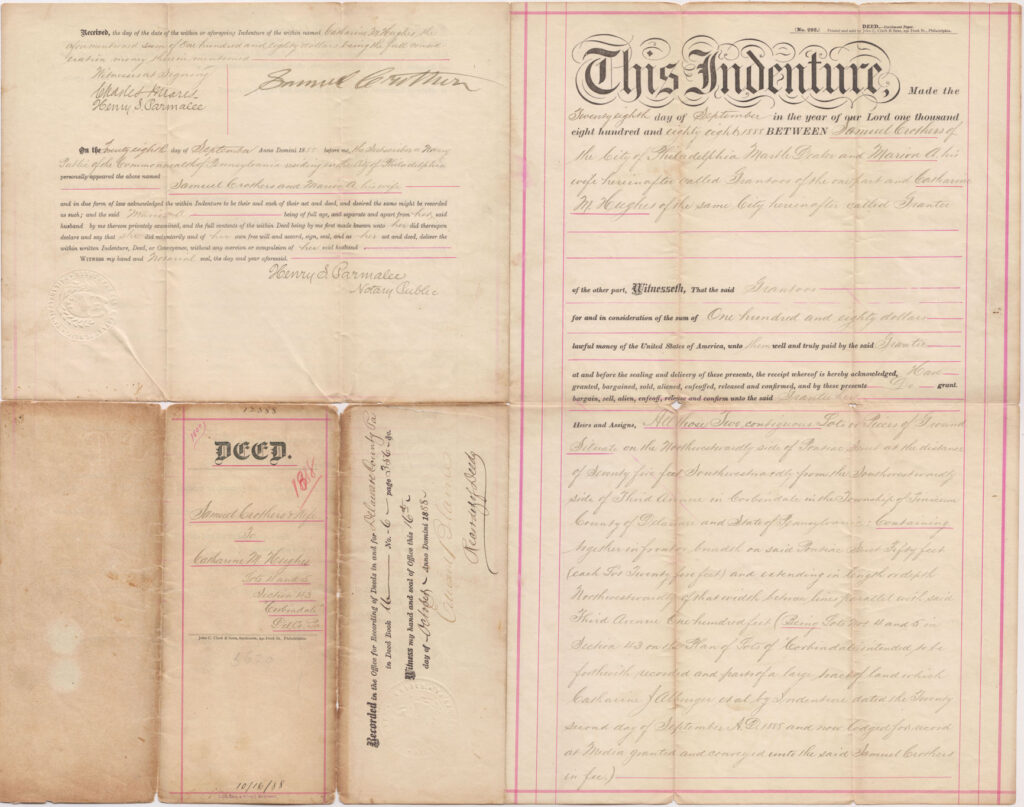 Received, the day of the date of the within or aforegoing Indenture of the within named Catharine M. Hughes the
aforementioned sum of One hundred and eighty dollars being the full consid
eration money therein mentioned
Witnesses at Signing
Charles
Henry S. Parmalee
Samuel Crothers
On the twenty eighth day of September Anno Domini 1888 before me, the Subscriber a Notary
Public of the Commonwealth of Pennsylvania residing in the City of Philadelphia
personally appeared the above named
Samuel Crothers and Marion A. his wife
and in due form of law acknowledged the within Indenture to be their and each of their act and deed, and desired the same might be recorded
as such; and the said Marion A being of full age, and separate and apart from her, said
husband by me thereon privately examined, and the full contents of the within Deed being by me first made known unto her did thereupon
declare and say that She did voluntarily and of her own free will and accord, sign, seal, and as her act and deed, deliver the
within written Indenture, Deed, or Conveyance, without any coercion or compulsion of her said husband
Witness my hand and Notarial seal, the day and year aforesaid.
Henry S. Parmalee
Notary Public
DEED.
1818
Samuel Crothers & Wife
To
Catharine M. Hughes
Lots 4 and 5
Section 43
Corbindale
Del Co. Pa
John C. Clark & Sons, Stationers, 230 Dock St., Philadelphia.
10/16/88
Recorded in the Office for Recording of Deeds in and for Delaware County Pa
in Deed Book No. 6 page 356 &c.
Witness my hand and seal of Office this 16th
day of October Anno Domini 1888
Recorder of Deeds
(No. 292.)
DEED.—Parchment Paper.
Printed and sold by John C. Clark & Sons, 230 Dock St., Philadelphia.
This Indenture, Made the
Twenty eighth day of September in the year of our Lord one thousand
eight hundred and eighty eight 1888 BETWEEN Samuel Crothers of
the City of Philadelphia Marble Dealer and Marion A. his
wife hereinafter called Grantors of the one part and Catharine
M. Hughes of the same City hereinafter called Grantee
of the other part, Witnesseth, That the said Grantors
for and in consideration of the sum of One hundred and eighty dollars
lawful money of the United States of America, unto them well and truly paid by the said Grantee
at and before the sealing and delivery of these presents, the receipt whereof is hereby acknowledged, Have
granted, bargained, sold, aliened, enfeoffed, released and confirmed, and by these presents Do grant.
bargain, sell, alien, enfeoff, release and confirm unto the said Grantee her
Heirs and Assigns, All those Two contiguous Lots or Pieces of Ground
Situate on the Northwestwardly side of Pontiac Street at the distance
of Seventy five feet Southwestwardly from the Southwestwardly
side of Third Avenue in Corbindale in the Township of Tinicum
County of Delaware and State of Pennsylvania Containing
together in front or breadth on said Pontiac Street Fifty feet
(each Lot Twenty five feet) and extending in length or depth
Northwestwardly of that width between lines parallel with said
Third Avenue One hundred feet (Being Lots Nos 4 and 5 in
Section 43 on the Plan of Lots of Corbindale intended to be
forthwith recorded and part of a large tract of land which
Catharine J et al by Indenture dated the Twenty
second day of September A.D. 1888 and now Lodged for record
at Media granted and conveyed unto the said Samuel Crothers
in fee.)